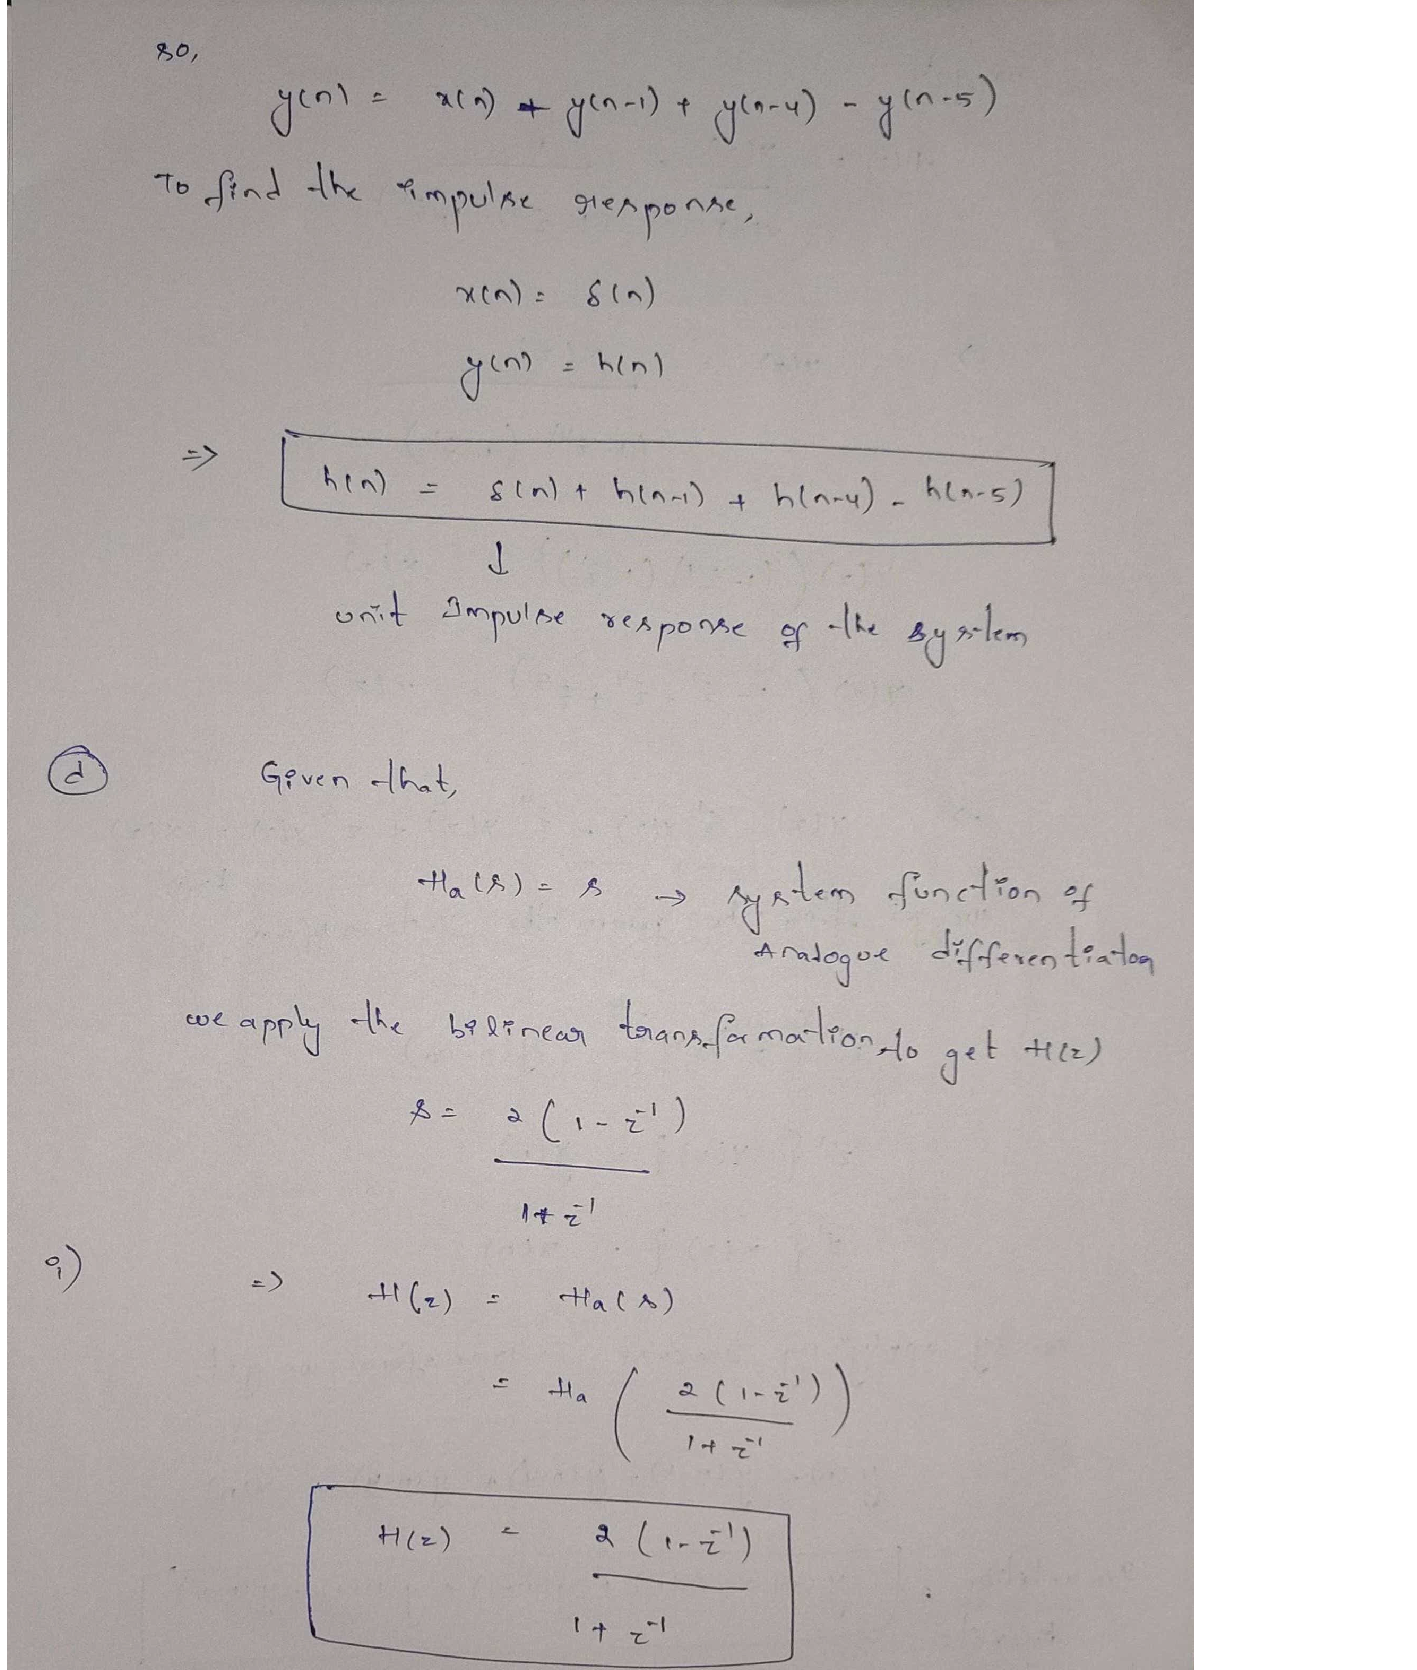 so,
y(n) = x(n) + y(n-1) + y(n-4) - y(n-5)
To find the impulse response,
x(n) = δ(n)
y(n) = h(n)
=> h(n) = δ(n) + h(n-1) + h(n-4) - h(n-5)
↓
unit Impulse response of the system
(d) Given that,
Ha(s) = s → system function of
Analogue differentiator
we apply the bilinear transformation to get H(z)
s = 2(1-z⁻¹)
1+z⁻¹
i) => H(z) = Ha(s)
= Ha ( 2(1-z⁻¹) )
1+z⁻¹
H(z) = 2(1-z⁻¹)
1+z⁻¹